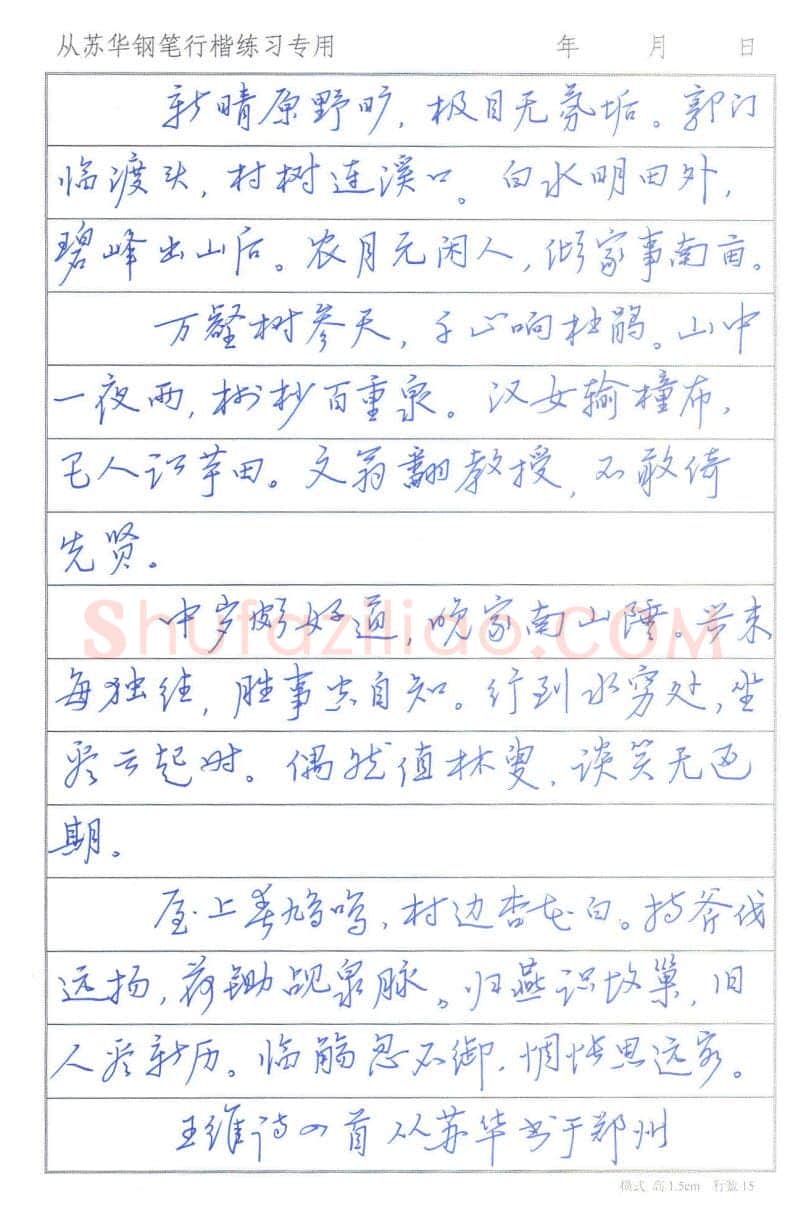 从苏华钢笔行楷练习专用 年 月 日
新晴原野旷，极目无氛垢。郭门
临渡头，村树连溪口。白水明田外，
碧峰出山后。农月无闲人，倾家事南亩。
万壑树参天，千山响杜鹃。山中
一夜雨，树杪百重泉。汉女输橦布，
巴人讼芋田。文翁翻教授，不敢倚
先贤。
中岁颇好道，晚家南山陲。兴来
每独往，胜事空自知。行到水穷处，坐
看云起时。偶然值林叟，谈笑无还
期。
屋上春鸠鸣，村边杏花白。持斧伐
远扬，荷锄觇泉脉。归燕识故巢，旧
人看新历。临觞忽不御，惆怅思远客。
王维诗四首 从苏华书于郑州
Shufaziliao.COM
横式 高1.5cm 行数15